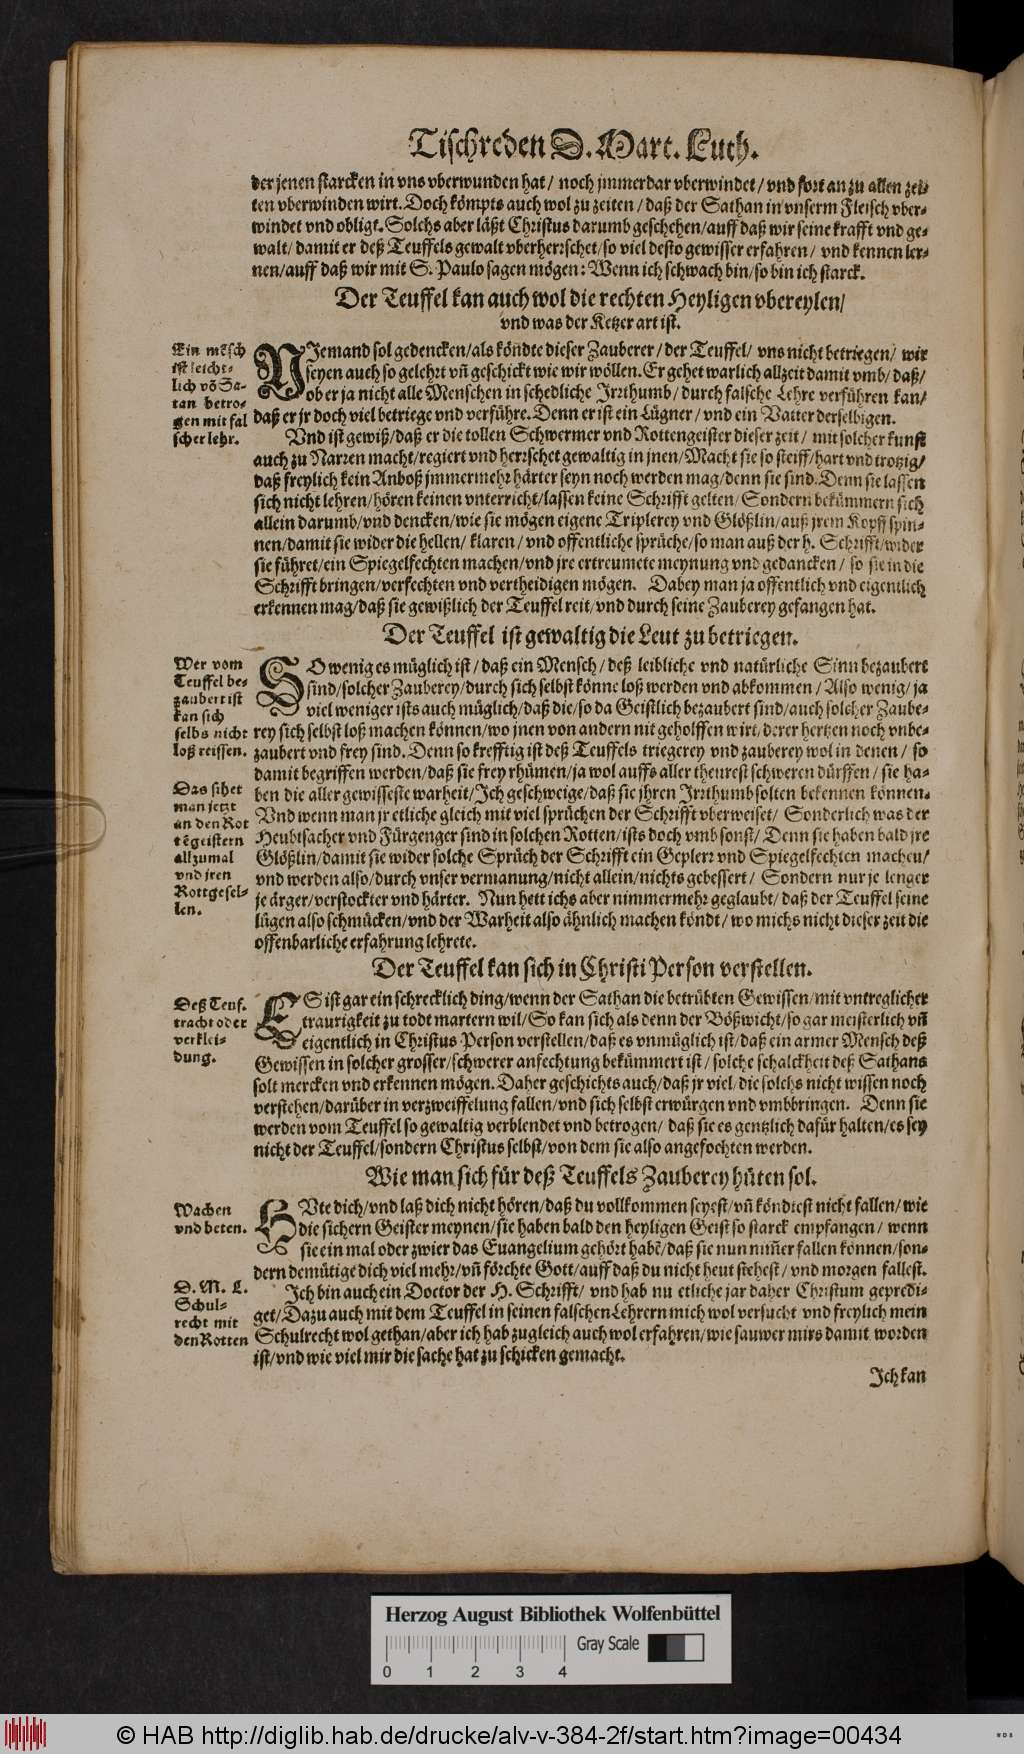 Tischreden D. Mart. Luth.
der jenen starcken in vns vberwunden hat / noch jmmerdar vberwindet / vnd fort an zu allen zei-
ten vberwinden wirt. Doch kömpts auch wol zu zeiten / daß der Sathan in vnserm Fleisch vber-
windet vnd obligt. Solchs aber läßt Christus darumb geschehen / auff daß wir seine krafft vnd ge-
walt / damit er deß Teuffels gewalt vberherrschet / so viel desto gewisser erfahren / vnd kennen ler-
nen / auff daß wir mit S. Paulo sagen mögen: Wenn ich schwach bin / so bin ich starck.
Der Teuffel kan auch wol die rechten Heyligen vbereylen /
vnd was der Ketzer art ist.
Ein mẽsch
ist leicht-
lich võ Sa-
tan betro-
gen mit fal
scher lehr.
NJemand sol gedencken / als köndte dieser Zauberer / der Teuffel / vns nicht betriegen / wir
seyen auch so gelehrt vñ geschickt wie wir wöllen. Er gehet warlich allzeit damit vmb / daß /
ob er ja nicht alle Menschen in schedliche Jrrthumb / durch falsche Lehre verführen kan /
daß er jr doch viel betriege vnd verführe. Denn er ist ein Lügner / vnd ein Vatter derselbigen.
Vnd ist gewiß / daß er die tollen Schwermer vnd Rottengeister dieser zeit / mit solcher kunst
auch zu Narren macht / regiert vnd herrschet gewaltig in jnen / Macht sie so steiff / hart vnd trotzig /
daß freylich kein Anboß jmmermehr härter seyn noch werden mag / denn sie sind. Denn sie lassen
sich nicht lehren / hören keinen vnterricht / lassen keine Schrifft gelten / Sondern bekümmern sich
allein darumb / vnd dencken / wie sie mögen eigene Triplerey vnd Glößlin / auß jrem Kopff spin-
nen / damit sie wider die hellen / klaren / vnd offentliche sprüche / so man auß der h. Schrifft / wider
sie führet / ein Spiegelfechten machen / vnd jre ertreumete meynung vnd gedancken / so sie in die
Schrifft bringen / verfechten vnd vertheidigen mögen. Dabey man ja offentlich vnd eigentlich
erkennen mag / daß sie gewißlich der Teuffel reit / vnd durch seine Zauberey gefangen hat.
Der Teuffel ist gewaltig die Leut zu betriegen.
Wer vom
Teuffel be-
zaubert ist
kan sich
selbs nicht
loß reissen.
Das sihet
man jetzt
an den Rot
tẽgeistern
allzumal
vnd jren
Rottgesel-
len.
SO wenig es müglich ist / daß ein Mensch / deß leibliche vnd natürliche Sinn bezaubert
sind / solcher Zauberey / durch sich selbst könne loß werden vnd abkommen / Also wenig / ja
viel weniger ists auch müglich / daß die / so da Geistlich bezaubert sind / auch solcher Zaube-
rey sich selbst loß machen können / wo jnen von andern nit geholffen wirt / derer hertzen noch vnbe-
zaubert vnd frey sind. Denn so krefftig ist deß Teuffels triegerey vnd zauberey wol in denen / so
damit begriffen werden / daß sie frey rhümen / ja wol auffs aller theurest schweren dürffen / sie ha-
ben die aller gewisseste warheit / Jch geschweige / daß sie jhren Jrrthumb solten bekennen können.
Vnd wenn man jr etliche gleich mit viel sprüchen der Schrifft vberweiset / Sonderlich was der
Heubtsacher vnd Fürgenger sind in solchen Rotten / ists doch vmb sonst / Denn sie haben bald jre
Glößlin / damit sie wider solche Sprüch der Schrifft ein Geplerr vnd Spiegelfechten machen /
vnd werden also / durch vnser vermanung / nicht allein / nichts gebessert / Sondern nur je lenger
je ärger / verstockter vnd härter. Nun hett ichs aber nimmermehr geglaubt / daß der Teuffel seine
lügen also schmücken / vnd der Warheit also ähnlich machen köndt / wo michs nicht dieser zeit die
offenbarliche erfahrung lehrete.
Der Teuffel kan sich in Christi Person verstellen.
Deß Teuf.
tracht oder
verklei-
dung.
ES ist gar ein schrecklich ding / wenn der Sathan die betrübten Gewissen / mit vntreglicher
traurigkeit zu todt martern wil / So kan sich als denn der Bößwicht / so gar meisterlich vñ
eigentlich in Christus Person verstellen / daß es vnmüglich ist / daß ein armer Mensch deß
Gewissen in solcher grosser / schwerer anfechtung bekümmert ist / solche schalckheit deß Sathans
solt mercken vnd erkennen mögen. Daher geschichts auch / daß jr viel / die solchs nicht wissen noch
verstehen / darüber in verzweiffelung fallen / vnd sich selbst erwürgen vnd vmbbringen. Denn sie
werden vom Teuffel so gewaltig verblendet vnd betrogen / daß sie es gentzlich dafür halten / es sey
nicht der Teuffel / sondern Christus selbst / von dem sie also angefochten werden.
Wie man sich für deß Teuffels Zauberey hüten sol.
Wachen
vnd beten.
HVte dich / vnd laß dich nicht hören / daß du vollkommen seyest / vñ köndtest nicht fallen / wie
die sichern Geister meynen / sie haben bald den heyligen Geist so starck empfangen / wenn
sie ein mal oder zwier das Euangelium gehört habẽ / daß sie nun nim̃er fallen können / son-
dern demütige dich viel mehr / vñ förchte Gott / auff daß du nicht heut stehest / vnd morgen fallest.
D. M. L.
Schul-
recht mit
den Rotten
Jch bin auch ein Doctor der H. Schrifft / vnd hab nu etliche jar daher Christum gepredi-
get / Dazu auch mit dem Teuffel in seinen falschen Lehrern mich wol versucht vnd freylich mein
Schulrecht wol gethan / aber ich hab zugleich auch wol erfahren / wie sauwer mirs damit worden
ist / vnd wie viel mir die sache hat zu schicken gemacht.
Jch kan
Herzog August Bibliothek Wolfenbüttel
Gray Scale
0 1 2 3 4
© HAB http://diglib.hab.de/drucke/alv-v-384-2f/start.htm?image=00434